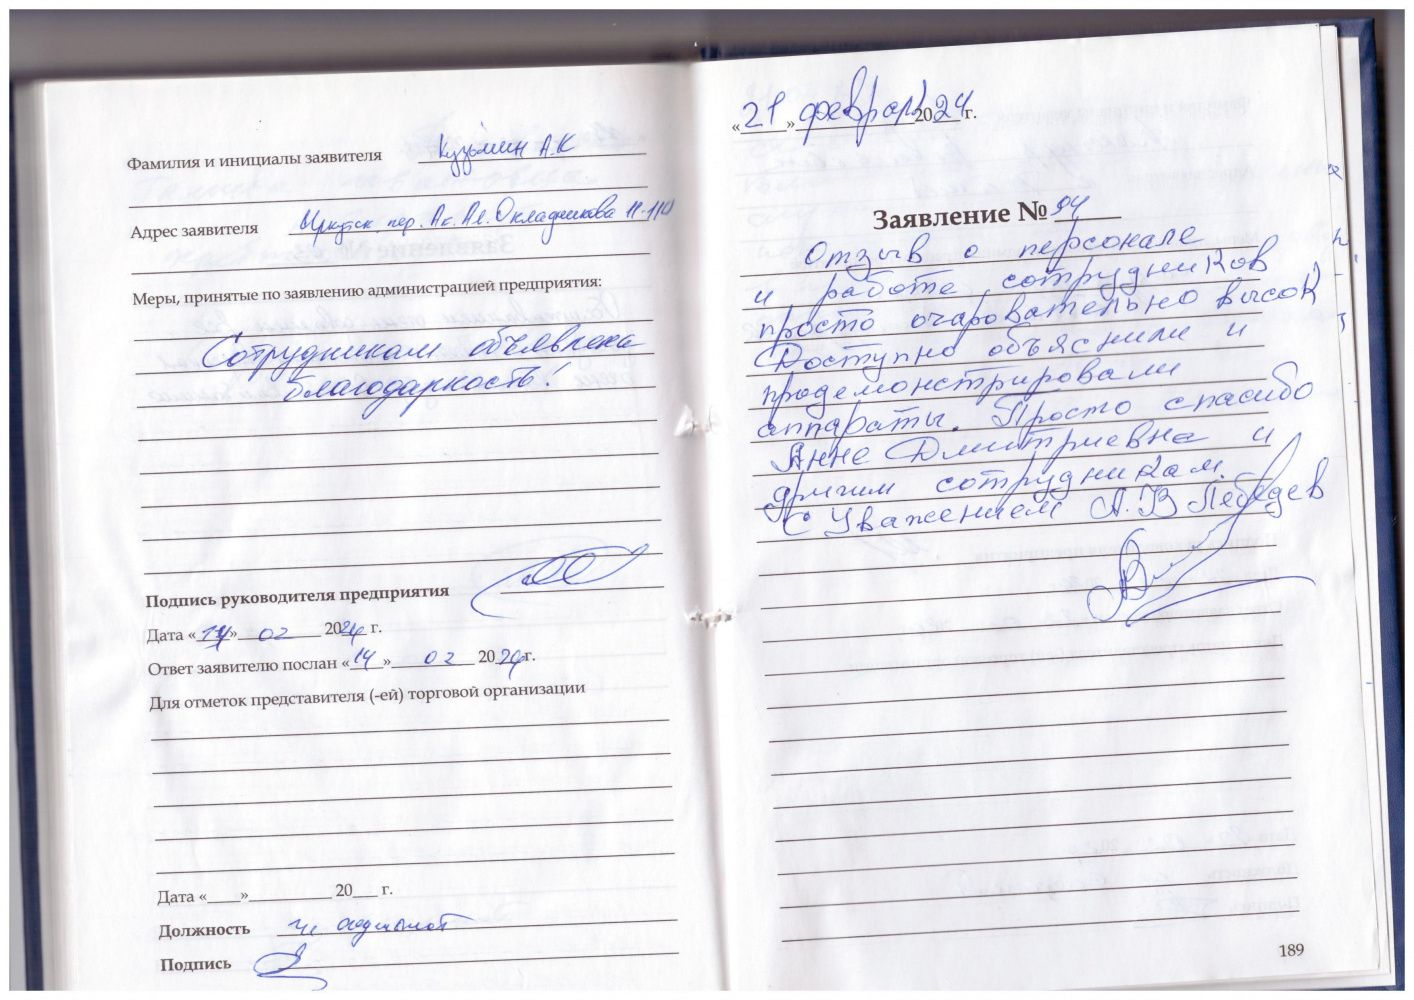 Фамилия и инициалы заявителя Кузьмин А.К
Адрес заявителя Иркутск пер. Ак. Ал. Окладникова 11-110
Меры, принятые по заявлению администрацией предприятия:
Сотрудникам объявлена
благодарность!
Подпись руководителя предприятия
Дата «14» 02 2024 г.
Ответ заявителю послан «14» 02 2024 г.
Для отметок представителя (-ей) торговой организации
Дата «___» 20__ г.
Должность
Подпись
«21» февраля 2024 г.
Заявление № 94
Отзыв о персонале
и работе сотрудников
просто очаровательно высок
Доступно объяснили и
продемонстрировали
аппараты. Просто спасибо
Анне Дмитриевне и
другим сотрудникам.
С Уважением А.В Лебедев
189